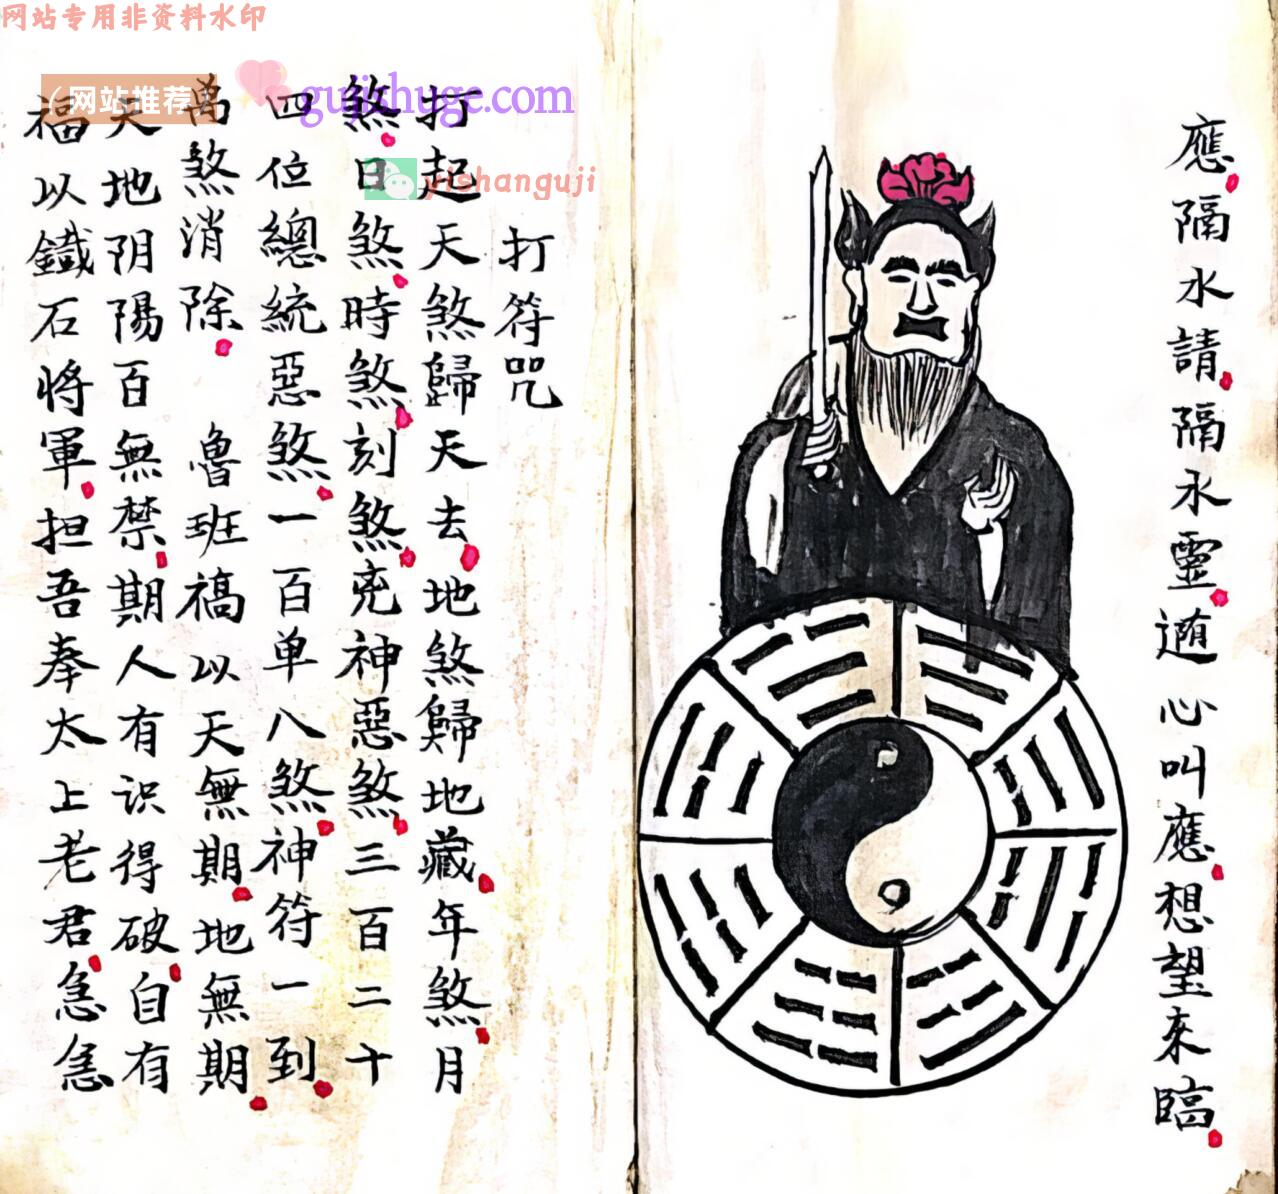 网站专用非资料水印
（网站推荐）
gujishuge.com
yishanguji
應隔水請隔永靈遁心叫應想望來臨
打符咒
打起天煞歸天去地煞歸地藏年煞月
煞日煞時煞刻煞兇神惡煞三百二十
四位總統惡煞一百单八煞神符一到
萬煞消除 魯班禞以天無期地無期
天地阴陽百無禁期人有识得破自有
福以鐡石将軍担吾奉太上老君急急